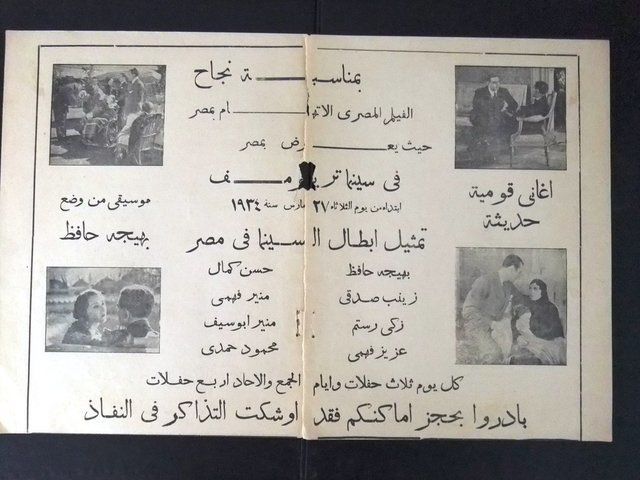 بمناسبة نجاح
الفيلم المصرى الاتهام بمصر
حيث يعرض بمصر
فى سينما تريومف
ابتداء من يوم الثلاثاء ٢٧ مارس سنة ١٩٣٤
تمثيل ابطال السينما فى مصر
بهيجه حافظ
حسن كمال
زينب صدقى
منير فهمى
زكى رستم
منير ابوسيف
عزيز فهمى
محمود حمدى
كل يوم ثلاث حفلات وايام الجمع والاحاد اربع حفلات
بادروا بحجز اماكنكم فقد اوشكت التذاكر فى النفاذ
اغانى قومية
حديثة
موسيقى من وضع
بهيجه حافظ